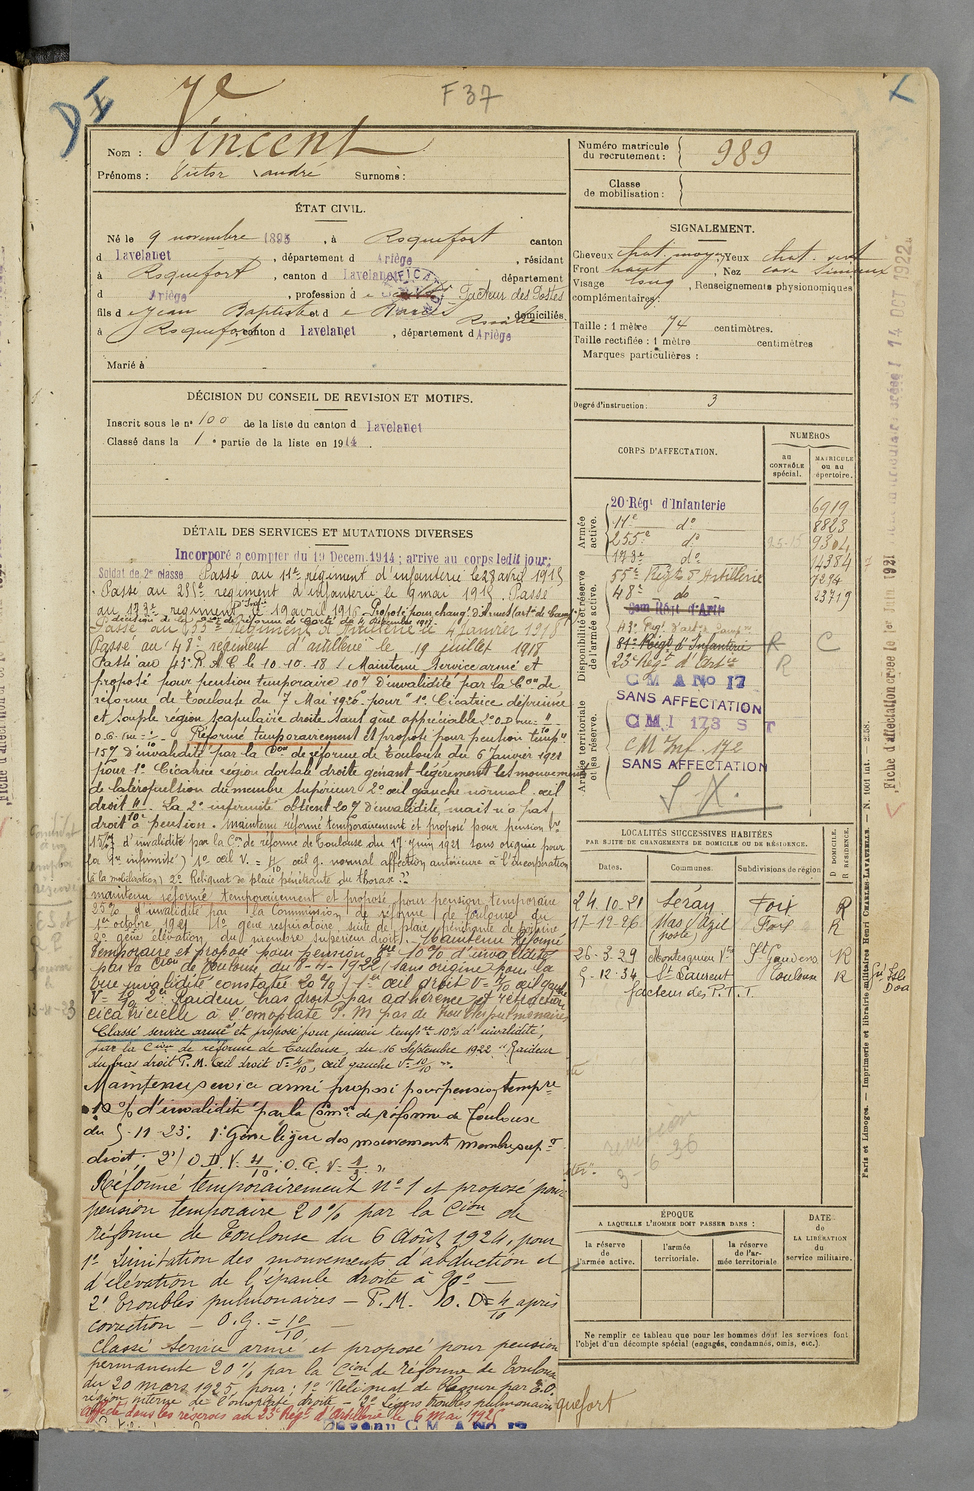 F 37
Nom : Vincent
Prénoms : Victor André Surnoms :
Numéro matricule du recrutement : 989
Classe de mobilisation :
ÉTAT CIVIL.
Né le 9 novembre 1893, à Roquefort canton
d Lavelanet, département d Ariège, résidant
à Roquefort, canton d Lavelanet département
d Ariège, profession d Facteur des Postes
fils d e Jean Baptiste et d e Rosalie domiciliés
à Roquefort canton d Lavelanet, département d Ariège
Marié à
DÉCISION DU CONSEIL DE REVISION ET MOTIFS.
Inscrit sous le n° 100 de la liste du canton d Lavelanet
Classé dans la 1e partie de la liste en 1914.
DÉTAIL DES SERVICES ET MUTATIONS DIVERSES
Incorporé a compter du 19 Decem. 1914 ; arrive au corps ledit jour;
Soldat de 2e classe Passé au 11e régiment d'infanterie le 28 avril 1915
Passé au 255e régiment d'infanterie le 9 mai 1915. Passé
au 173e régiment d'Inf. le 19 avril 1916. Proposé pour chang t d'Arme (art ie de Camp.
Passé au 55e Régiment d'Artillerie le 4 Janvier 1918
Passé au 48e régiment d'artillerie le 19 juillet 1918
Passé au 43e R A C le 10.10.18. Maintenu Service armé et
proposé pour pension temporaire 10% d'invalidité par la Con de
réforme de Toulouse du 7 Mai 1920 pour 1° Cicatrice déprimée
et souple région scapulaire droite sans gêne appréciable 2°
Réformé temporairement et proposé pour pension temp re
15% d'invalidité par la Con de réforme de Toulouse du 6 Janvier 1921
pour 1° Cicatrice région dorsale droite gênant légèrement les mouvements
de la rétropulsion du membre supérieur 2° œil gauche normal. œil
droit 4/10. La 2e infirmité obtient 20% d'invalidité, mais n'a pas
droit à pension. Maintenu réformé temporairement et proposé pour pension tre
15% d'invalidité par la Con de réforme de Toulouse du 17 Juin 1921 sans origine pour
la 1re infirmité) 1° œil V. = 4/10 œil g. normal affection antérieure à l'incorporation
(à la mobilisation) 2° Reliquat de plaie pénétrante du thorax.
maintenu réformé temporairement et proposé pour pension temporaire
25% d'invalidité par la Commission de réforme de Toulouse du
1er octobre 1921 1° gêne respiratoire suite de plaie pénétrante de poitrine
2° gêne élévation du membre supérieur droit. Maintenu Réformé
temporaire et proposé pour pension tre 10% d'invalidité
par la Cion de Toulouse du 8-4-1922 (sans origine pour la
1re invalidité constatée 20%) 1° œil droit V = 4/10 œil gauche
V = 2° Raideur bras droit par adhérence et rétraction
cicatricielle à l'omoplate P.M pas de troubles pulmonaires
Classé service armé et proposé pour pension temp re 10% d'invalidité,
par la Cion de réforme de Toulouse, du 16 Septembre 1922. "Raideur
du bras droit P. M. œil droit V = 4/10, œil gauche V = 10/10 ".
Maintenu service armé proposé pour pension temp re
10% d'invalidité par la Comon de réforme de Toulouse
du 5-11-23: 1° Gêne légère des mouvements membre sup r
droit. 2°) O. D. V. 4/10; O. G. V.
Réformé temporairement N° 1 et proposé pour
pension temporaire 20% par la Cion de
réforme de Toulouse du 6 Août 1924, pour
1° Limitation des mouvements d'abduction et
d'élévation de l'épaule droite à 90° —
2° Troubles pulmonaires — P. M. V O. D = 4/10 après
correction — O. G. = 10/10 —
Classé Service armé et proposé pour pension
permanente 20% par la Cion de réforme de Toulouse
du 20 mars 1925, pour : 1° "Reliquat de blessure par E.O.
région interne de l'omoplate droite — 2° légers troubles pulmonaires
Affecté dans les réserves au 23e Régt d'Artillerie le 6 mai 1925
SIGNALEMENT.
Cheveux chat. moy. Yeux chat. vert
Front haut, Nez cave sinueux
Visage long, Renseignements physionomiques complémentaires:
Taille : 1 mètre 74 centimètres.
Taille rectifiée : 1 mètre centimètres
Marques particulières :
Degré d'instruction: 3
CORPS D'AFFECTATION.
NUMÉROS
au CONTRÔLE spécial.
MATRICULE ou au répertoire.
Armée active.
Disponibilité et réserve de l'armée active.
Armée territoriale et sa réserve.
20 Régt d'Infanterie 6919
11e do 8823
255e do 9304
173e do 14384
55e Régt d'Artillerie 7294
48e do 23719
43e Régt d'art ie Camp ne
81e Régt d'Infanterie R C
23e Régt d'Art ie R
C M A No 17
SANS AFFECTATION
C M I 173 S T
C M Inf. 172
SANS AFFECTATION
S. X.
LOCALITÉS SUCCESSIVES HABITÉES
PAR SUITE DE CHANGEMENTS DE DOMICILE OU DE RÉSIDENCE.
Dates. Communes. Subdivisions de région D DOMICILE. R RÉSIDENCE.
24.10.21 Léran Foix R
17-12-26 Mas d'Azil (poste) Foix R
26-3-29 Montesquieu Vtre St Gaudens R
5-12-34 St Laurent Toulouse R
facteur des P. T. T.
revision
3-6 36
ÉPOQUE
A LAQUELLE L'HOMME DOIT PASSER DANS :
la réserve de l'armée active.
l'armée territoriale.
la réserve de l'armée territoriale
DATE de LA LIBÉRATION du service militaire.
Ne remplir ce tableau que pour les hommes dont les services font l'objet d'un décompte spécial (engagés, condamnés, omis, etc.).
Paris et Limoges. — Imprimerie et librairie militaires Henri CHARLES-LAVAUZELLE.
Fiche d'affectation créée le 1er Juin 1921
14 OCT 1922